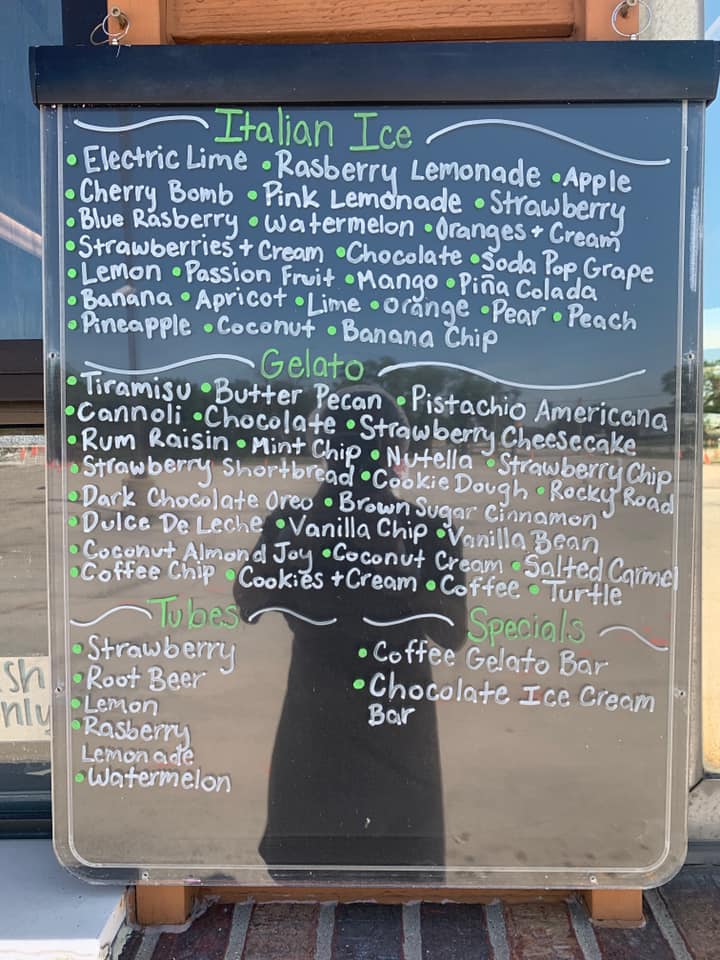 Italian Ice
• Electric Lime • Rasberry Lemonade • Apple
• Cherry Bomb • Pink Lemonade • Strawberry
• Blue Rasberry • Watermelon • Oranges + Cream
• Strawberries + Cream • Chocolate • Soda Pop Grape
• Lemon • Passion Fruit • Mango • Piña Colada
• Banana • Apricot • Lime • Orange • Pear • Peach
• Pineapple • Coconut • Banana Chip
Gelato
• Tiramisu • Butter Pecan • Pistachio Americana
• Cannoli • Chocolate • Strawberry Cheesecake
• Rum Raisin • Mint Chip • Nutella • Strawberry Chip
• Strawberry Shortbread • Cookie Dough • Rocky Road
• Dark Chocolate Oreo • Brown Sugar Cinnamon
• Dulce De Leche • Vanilla Chip • Vanilla Bean
• Coconut Almond Joy • Coconut Cream • Salted Carmel
• Coffee Chip • Cookies + Cream • Coffee • Turtle
Tubes
• Strawberry
• Root Beer
• Lemon
• Rasberry
Lemonade
• Watermelon
Specials
• Coffee Gelato Bar
• Chocolate Ice Cream
Bar